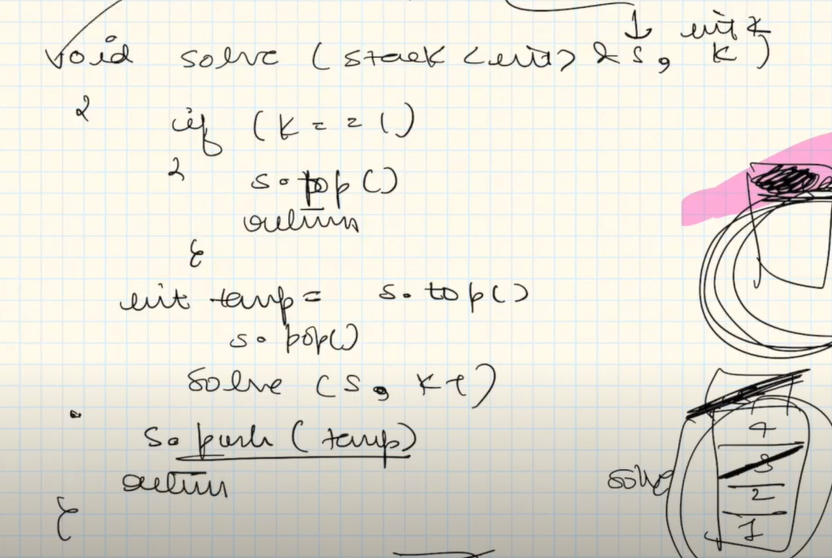 int &
void solve (stack <int> & s, k)
{
if (k == 1)
{
s.top()
return
}
int temp = s.top()
s.pop()
solve (s, k-1)
s.push (temp)
return
}
solve
4
3
2
1